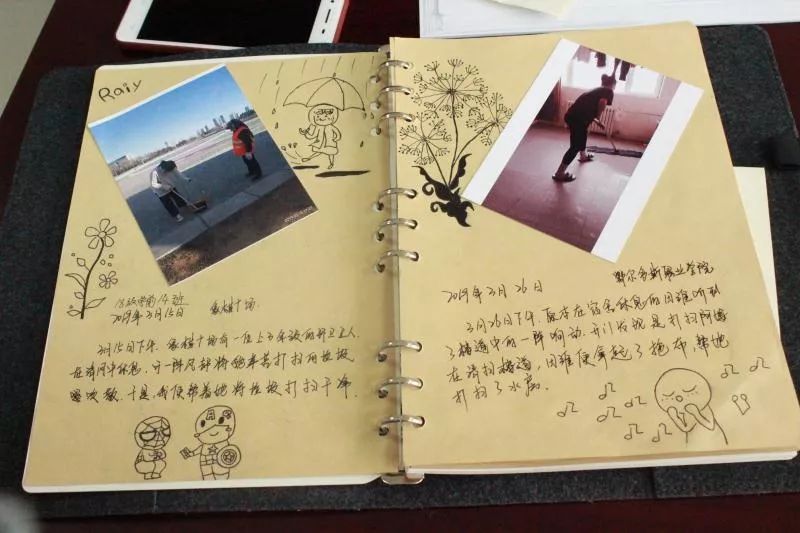 Raiy
18级学前14班
2019年3月15日 广场.
3月15日下午, 广场有一位上了年纪的环卫工人
在清风中休息, 可一阵风却将她辛苦打扫的垃圾
吹散. 于是, 我便帮着她将垃圾打扫干净.
鄂尔多斯职业学院
2019年3月26日
3月26日下午, 原本在宿舍休息的因雅听到
了楼道中的一阵响动. 开门发现是打扫阿姨
在清扫楼道, 因雅便拿起了拖布, 帮她
打扫了水房.